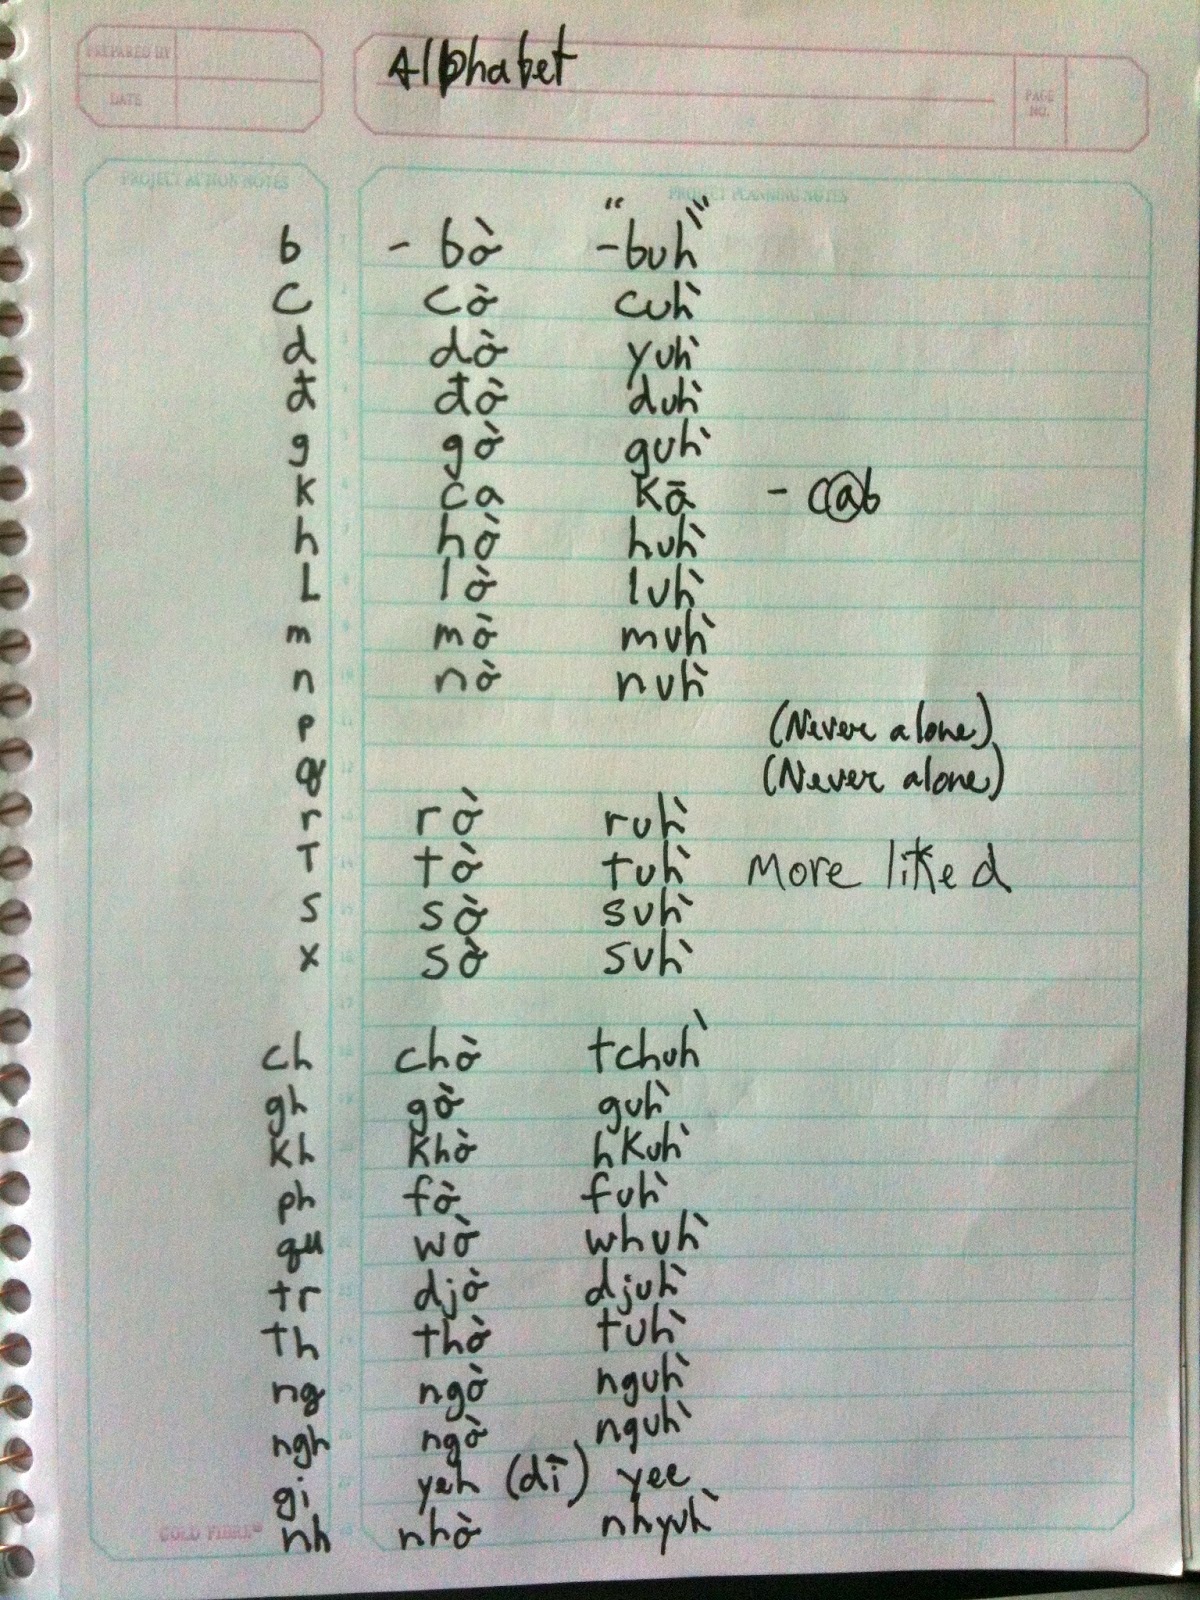 PREPARED BY
DATE
Alphabet
PAGE NO.
PROJECT ACTION NOTES
PROJECT PLANNING NOTES
b - bờ - "buh̀"
c cờ cuh̀
d dờ yuh̀
đ đờ duh̀
g gờ guh̀
k ca kā - cab
h hờ huh̀
L lờ luh̀
m mờ muh̀
n nờ nuh̀
p (Never alone)
q (Never alone)
r rờ ruh̀
T tờ tuh̀ More like d
s sờ suh̀
x sờ suh̀
ch chờ tchuh̀
gh gờ guh̀
kh khờ hkuh̀
ph fờ fuh̀
qu wờ whuh̀
tr djờ djuh̀
Th thờ tuh̀
ng ngờ nguh̀
ngh ngờ nguh̀
gi yeh (dì) yee
nh nhờ nhyuh̀
GOLD FIBRE®